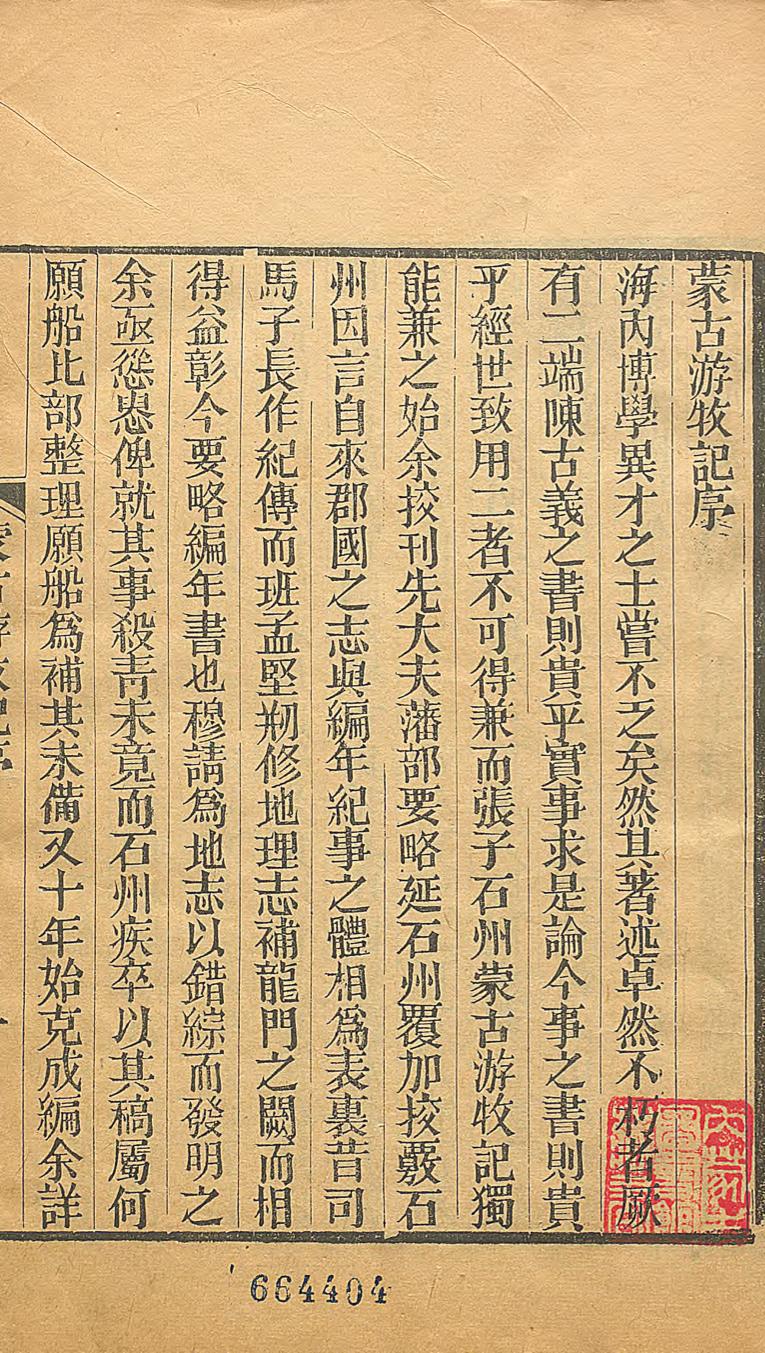 蒙古游牧記序
海內博學異才之士嘗不乏矣然其著述卓然不朽者厥
有二端陳古義之書則貴乎實事求是論今事之書則貴
乎經世致用二者不可得兼而張子石州蒙古游牧記獨
能兼之始余挍刊先大夫藩部要略延石州覆加挍覈石
州因言自來郡國之志與編年紀事之體相為表裏昔司
馬子長作紀傳而班孟堅剏修地理志補龍門之闕而相
得益彰今要略編年書也穆請為地志以錯綜而發明之
余亟慫恿俾就其事殺青未竟而石州疾卒以其稿屬何
願船比部整理願船為補其未備又十年始克成編余詳
蒙古游牧記序
一
664404